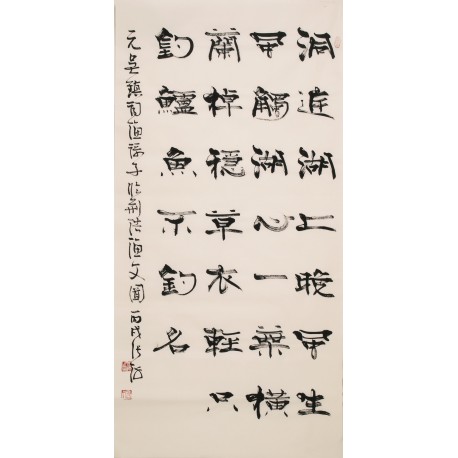 洞庭湖上晚風生
風觸湖心一葉橫
蘭棹穩草衣輕只
釣鱸魚不釣名
元吳鎮詞漁歌子臨荊浩漁父圖丙戌